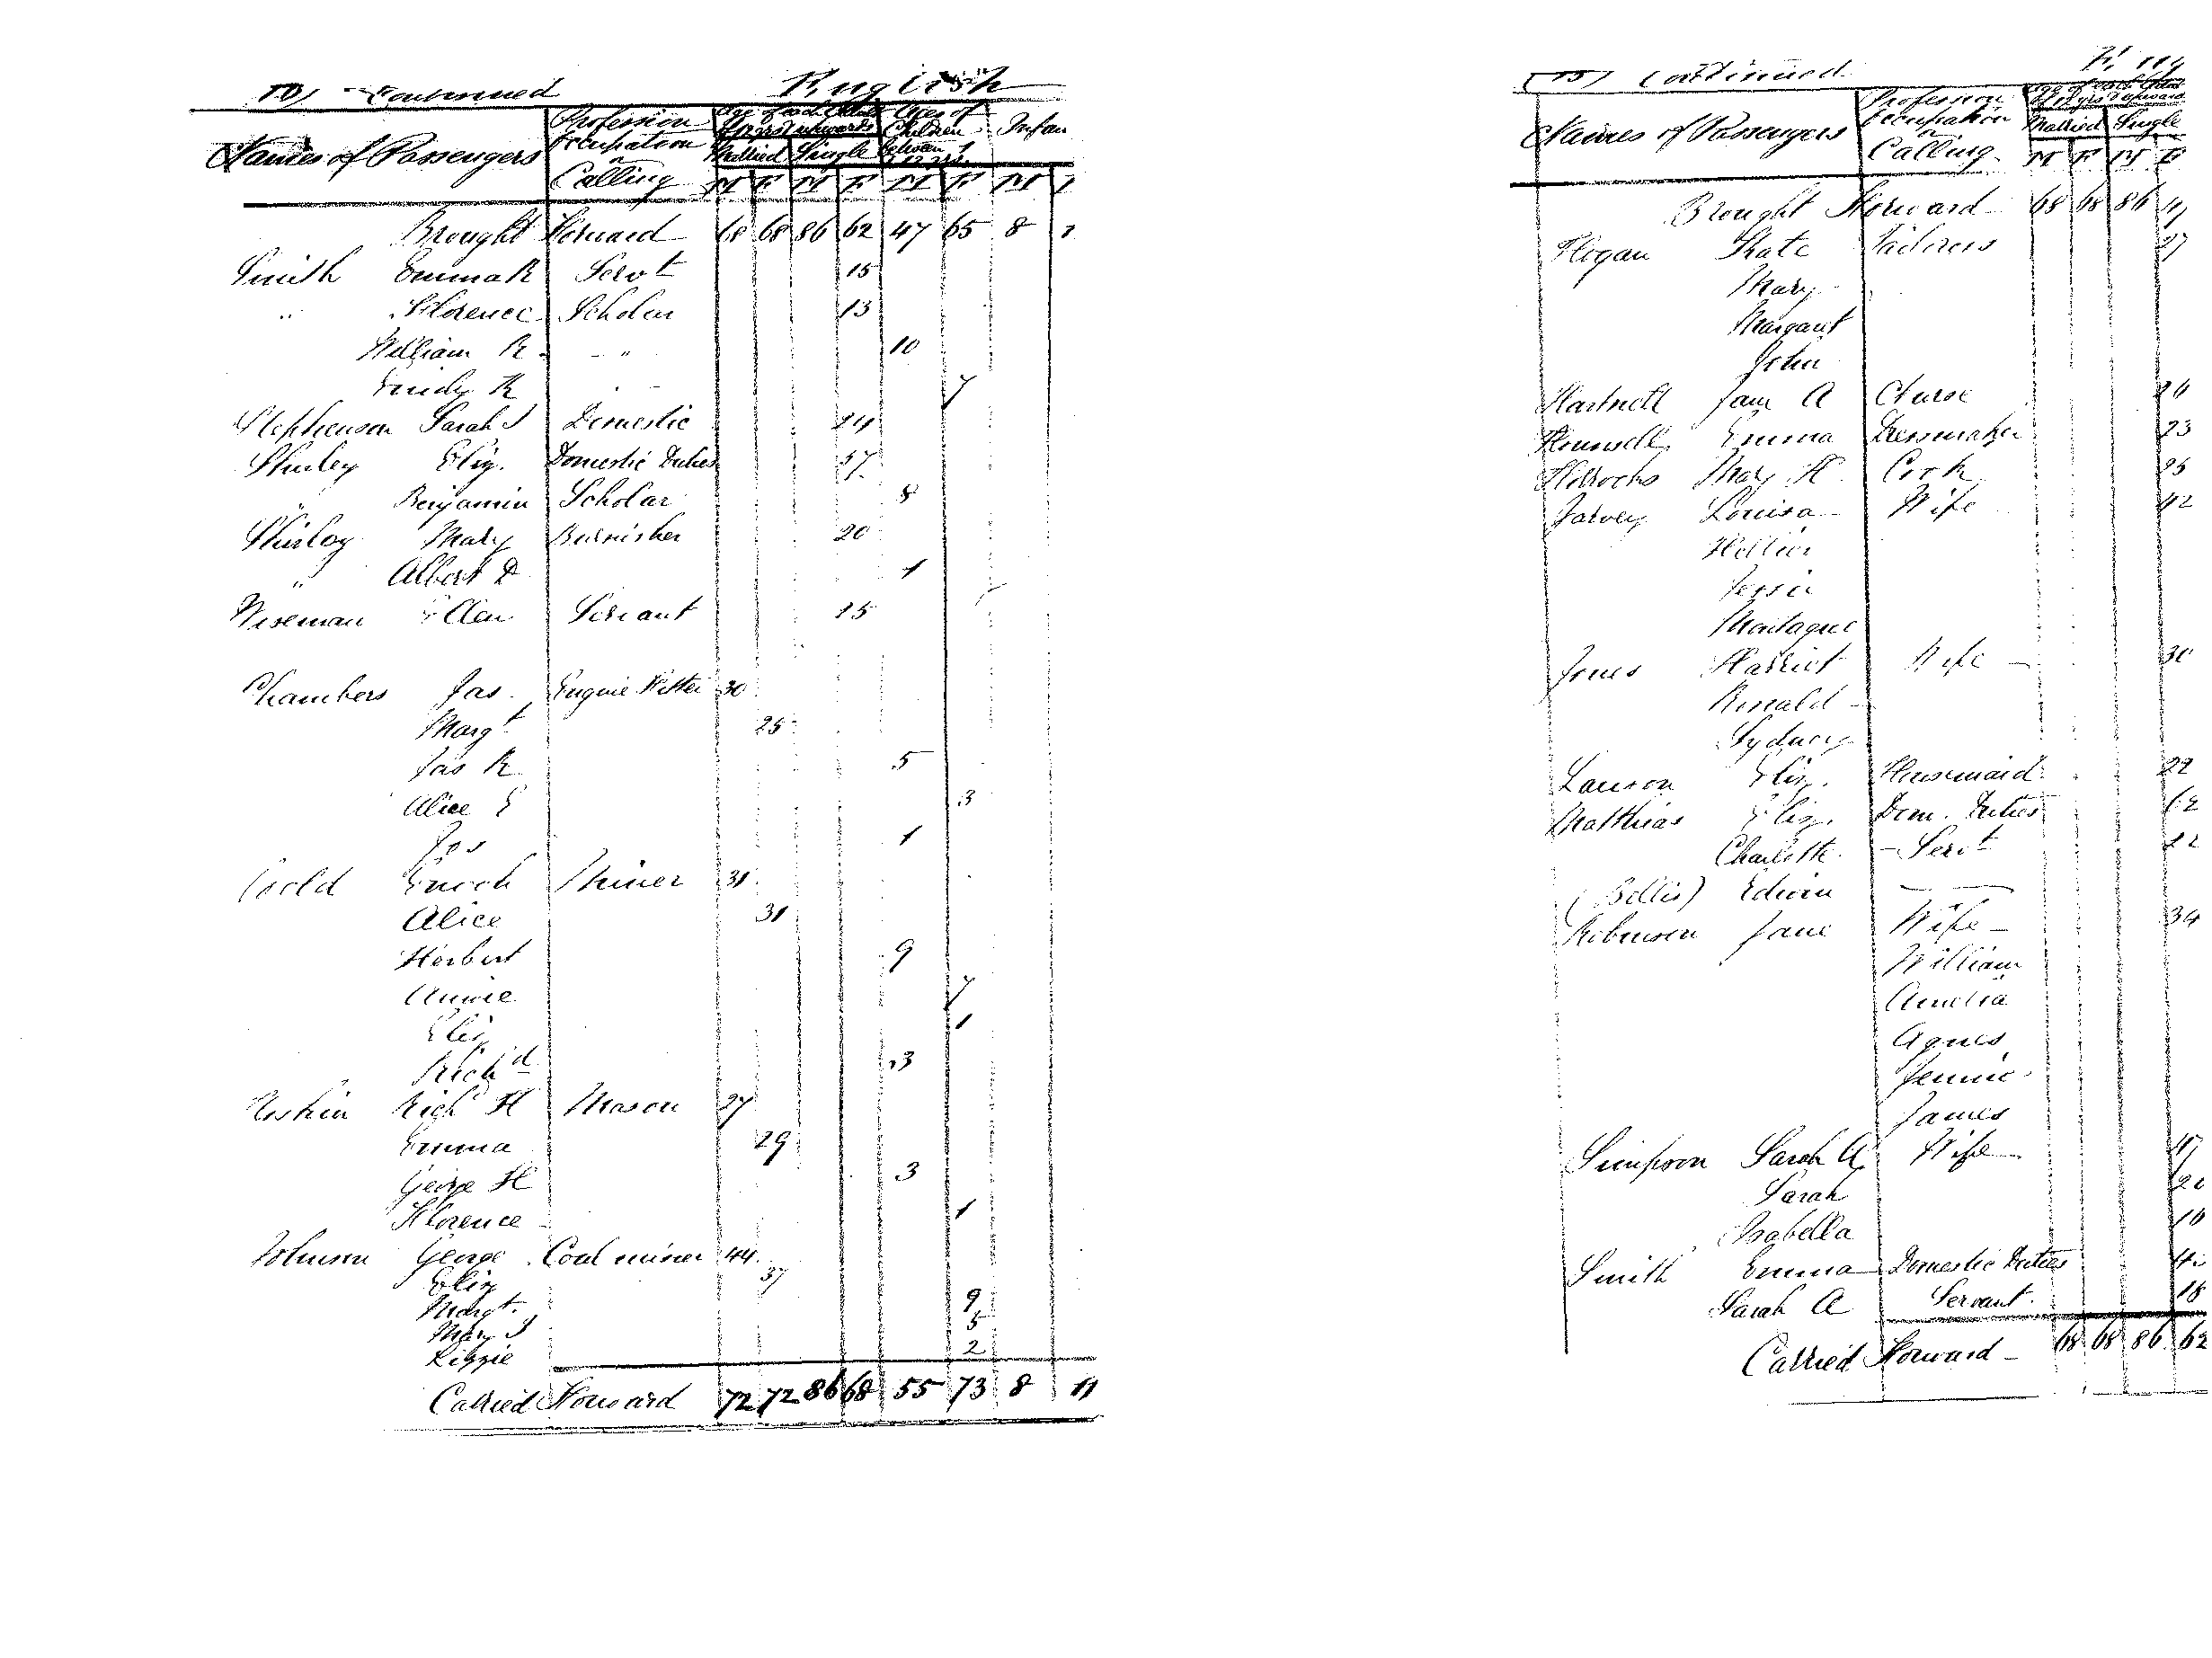 Continued English
Names of Passengers Profession Occupation or Calling Married Single Children between 1 & 12 yrs. Infan
M F M F M F M
Brought Forward 68 68 86 62 47 65 8
Smith Emma R Servt 15
" Florence Scholar 13
William R - " 10
Emily R 7
Stephenson Sarah J Domestic 24
Shirley Eliz. Domestic Duties 57
" Benjamin Scholar 8
Shirley Mary Burnisher 20
" Albert D 1
Wiseman Ellen Servant 25
Chambers Jas. Engine Fitter 30
Margt 25
Jas R 5
Alice E 3
Jos 1
Enoch Miner 31
Alice 31
Herbert 9
Annie 7
Eliz 1
Richd 3
Richd H Mason 27
Emma 29
George H 3
Florence 1
Johnson George Coal miner 44
Eliz 37
Margt. 9
Mary J 5
Lizzie 2
Carried Forward 72 72 86 68 55 73 8 11
(15) Continued
Names of Passengers Profession Occupation or Calling Married Single
M F M F
Brought Forward 68 68 86 4
Hogan Kate Tailoress 27
Mary
Margaret
John
Hartnett Jane A Nurse
Emma Dressmaker 23
Mary H Cook 25
Jarvey Louisa Wife 42
Jessie
Montague
Jones Harriet Wife 30
Ronald
Sydney
Lawson Eliz. Housemaid 22
Matthias Eliz. Dom. Duties 62
Charlotte - Servt 22
(Bellis) Edwin
Robinson Jane Wife 34
William
Amelia
Agnes
Jennie
James
Simpson Sarah A. Wife 47
Sarah 20
Isabella
Smith Emma Domestic Duties 4
Sarah A Servant 18
Carried Forward 68 68 86 62